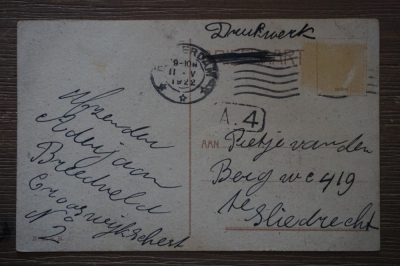 Drukwerk
BRIEFKAART
ERDAM
9-10V
11 V
1922
A.4
Afzender
Adrijaan
Breedveld
Crooswijkschest
No
2
AAN Pietje van den
Berg wc 419
te
Sliedrecht